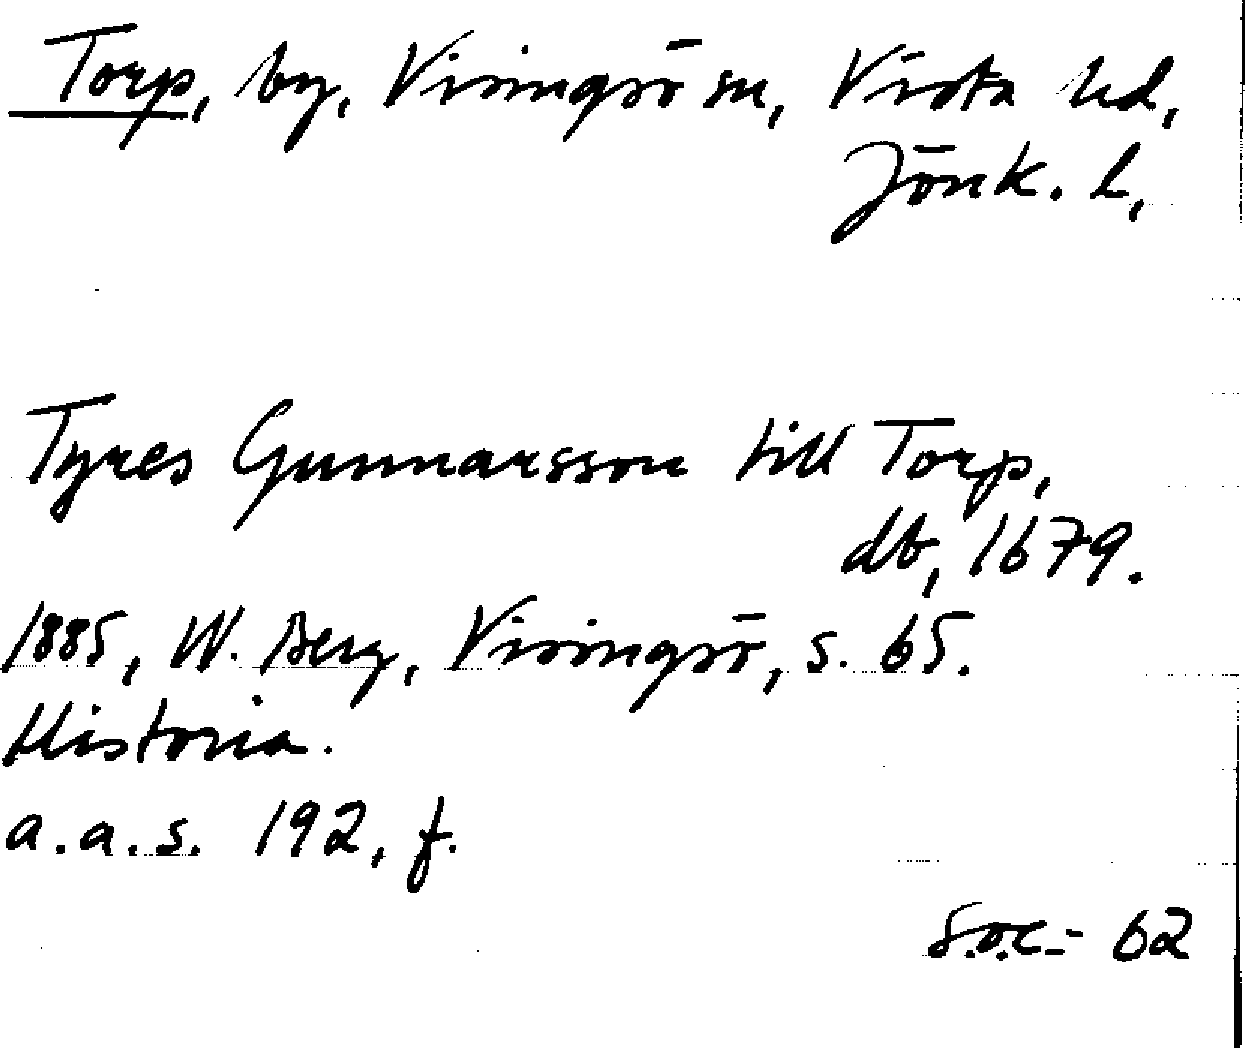 Torp, by, Visingsö sn, Vista hd,
Jönk. l,
Tyres Gunnarsson till Torp,
db, 1679.
1885, W. Berg, Visingsö, s. 65.
Historia.
a.a.s. 192, f.
S.o.c.- 62